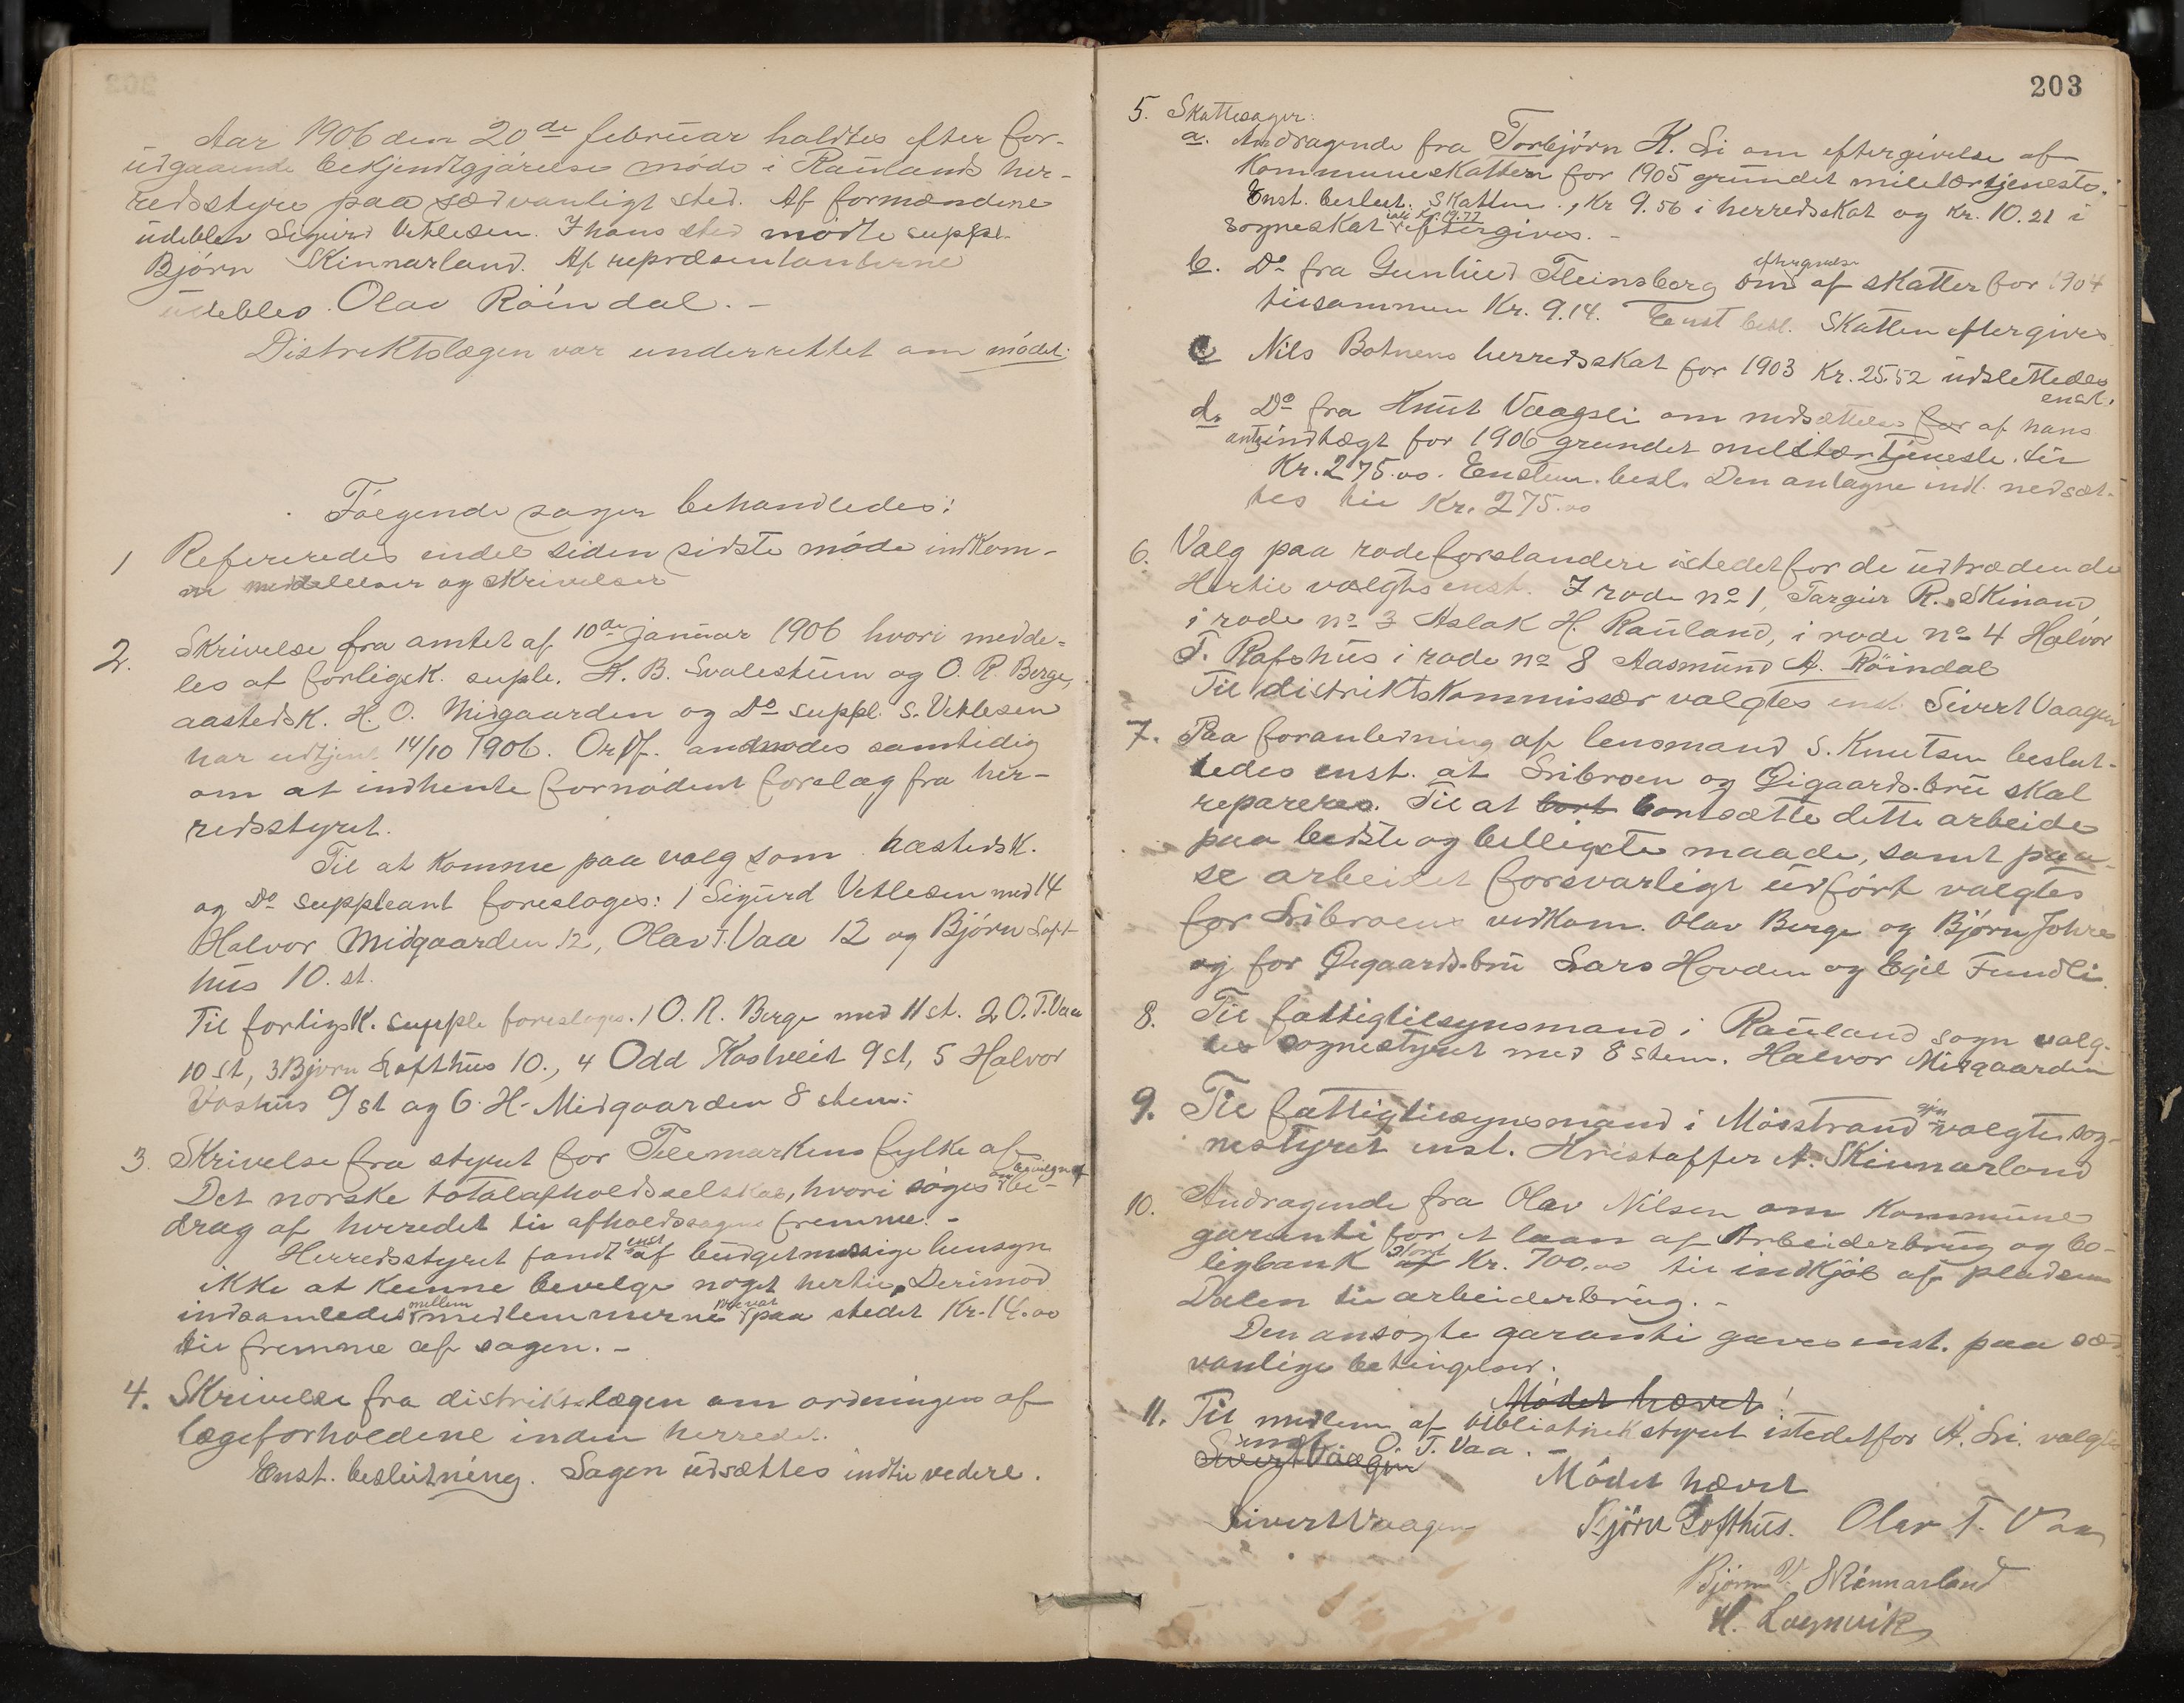 Aar 1906 den 20de februar holdtes efter for-
udgaaende bekjendtgjørelse møde i Raulands her-
redsstyre paa sædvanligt sted. Af formændene
udeblev Sigurd Vetlesen. I hans sted mødte suppl.
Bjørn Skinnarland. Af repræsentanterne
udeblev Olav Röindal. -
Distriktslægen var underrettet om mødet.
Følgende sager behandledes:
1 Refereredes endel siden sidste møde indkom-
ne meddelelser og skrivelser
2. Skrivelse fra amtet af 10de januar 1906 hvori medde-
les at forligsk. suple. K. B. Svalestuen og O. R. Berge,
aastedsk. H. O. Midgaarden og Do suppl. S. Vetlesen
har udtjent 14/10 1906. Ordf. anmodes samtidig
om at indhente fornødent forslag fra her-
redsstyret.
Til at komme paa valg som aastedsk.
og Do suppleant foresloges: 1 Sigurd Vetlesen med 14
Halvor Midgaarden 12, Olav T. Vaa 12 og Bjørn Loft-
hus 10. st.
Til forligsk. supple foresloges. 1 O. R. Berge med 11 st. 2 O. T. Vaa
10 st, 3 Bjørn Lofthus 10., 4 Odd Kostveit 9 st, 5 Halvor
9 st og 6. H. Midgaarden 8 stem.
3. Skrivelse fra styret for Telemarkens fylke af
Det norske totalafholdsselskab, hvori søges om bevilgn. af bi-
drag af herredet til afholdssagens fremme. -
Herredsstyret fandt enst af budgetmæssige hensyn
ikke at kunne bevilge noget hertil. Derimod
indsamledes mellem medlemmerne privat paa stedet Kr. 14.00
til fremme af sagen. -
4. Skrivelse fra distriktslægen om ordningen af
lægeforholdene inden herredet.
Enst. beslutning. Sagen udsættes indtil videre.
203
5. Skattesager:
a. Andragende fra Torbjørn K. Li om eftergivelse af
Kommuneskatten for 1905 grundet militærtjeneste.
Enst. beslut. Skatten, Kr 9.56 i herredsskat og Kr. 10.21 i
sogneskat ialt Kr. 19.77 eftergives. -
b. Do fra Gunhild Fleinsberg om eftergivelse af skatter for 1904
tilsammen Kr. 9.14. Enst besl. Skatten eftergives
c Nils Botnens herredsskat for 1903 Kr. 25.52 udslettedes
enst.
d. Do fra Knut Vaagsli om nedsættelse for af hans
ant. indtægt for 1906 grundet militærtjeneste til
Kr. 275.00. Enstem. besl. Den antagne indt. nedsæt-
tes til Kr. 275.00
6. Valg paa rodeforstandere istedetfor de udtrædende
Hertil valgtes enst. I rode no 1, Targeir R. Skinand
i rode no 3 Aslak H. Rauland, i rode no 4 Halvor
T. Rafshus i rode no 8 Aasmund A. Röindal
Til distriktskommissær valgtes enst. Sivert Vaagen
7. Paa foranledning af lensmand S. Knutsen beslut-
tedes enst. at Libroen og Øigaards.bru skal
repareres. Til at bort bortsætte dette arbeide
paa bedste og billigste maade, samt paa-
se arbeidet forsvarligt udført valgtes
for Libroens vedkom. Olav Berge og Bjørn Johre
og for Øigaards.bru Lars Hovden og Egil Fundli.
8. Til fattigtilsynsmand i Rauland sogn valg-
tes sognestyret med 8 stem. Halvor Midgaarden
9. Til fattigtilsynsmand i Møsstrand gjen valgtes sog-
nestyret enst. Kristoffer A. Skinnarland
10. Andragende fra Olav Nilsen om Kommune
garanti for et laan af Arbeiderbrug og bo-
ligbank stort af Kr. 700.00 til indkjøb af pladsen
Dalen til arbeiderbrug. -
Den ansøgte garanti gaves enst. paa sæd-
vanlige betingelser.
Mødet hævet!
11. Til medlem af bibliothekstyret istedetfor A. Li. valgtes
enst O. T. Vaa. -
Sivert Vaagen
Mødet hævet
Sivert Vaagen Bjørn Lofthus. Olav T. Vaa
Bjørn V. Skinnarland
H. Lognvik